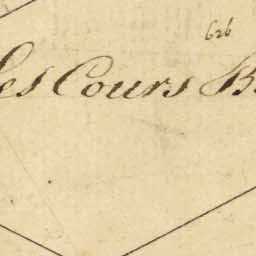 626
les Cours B